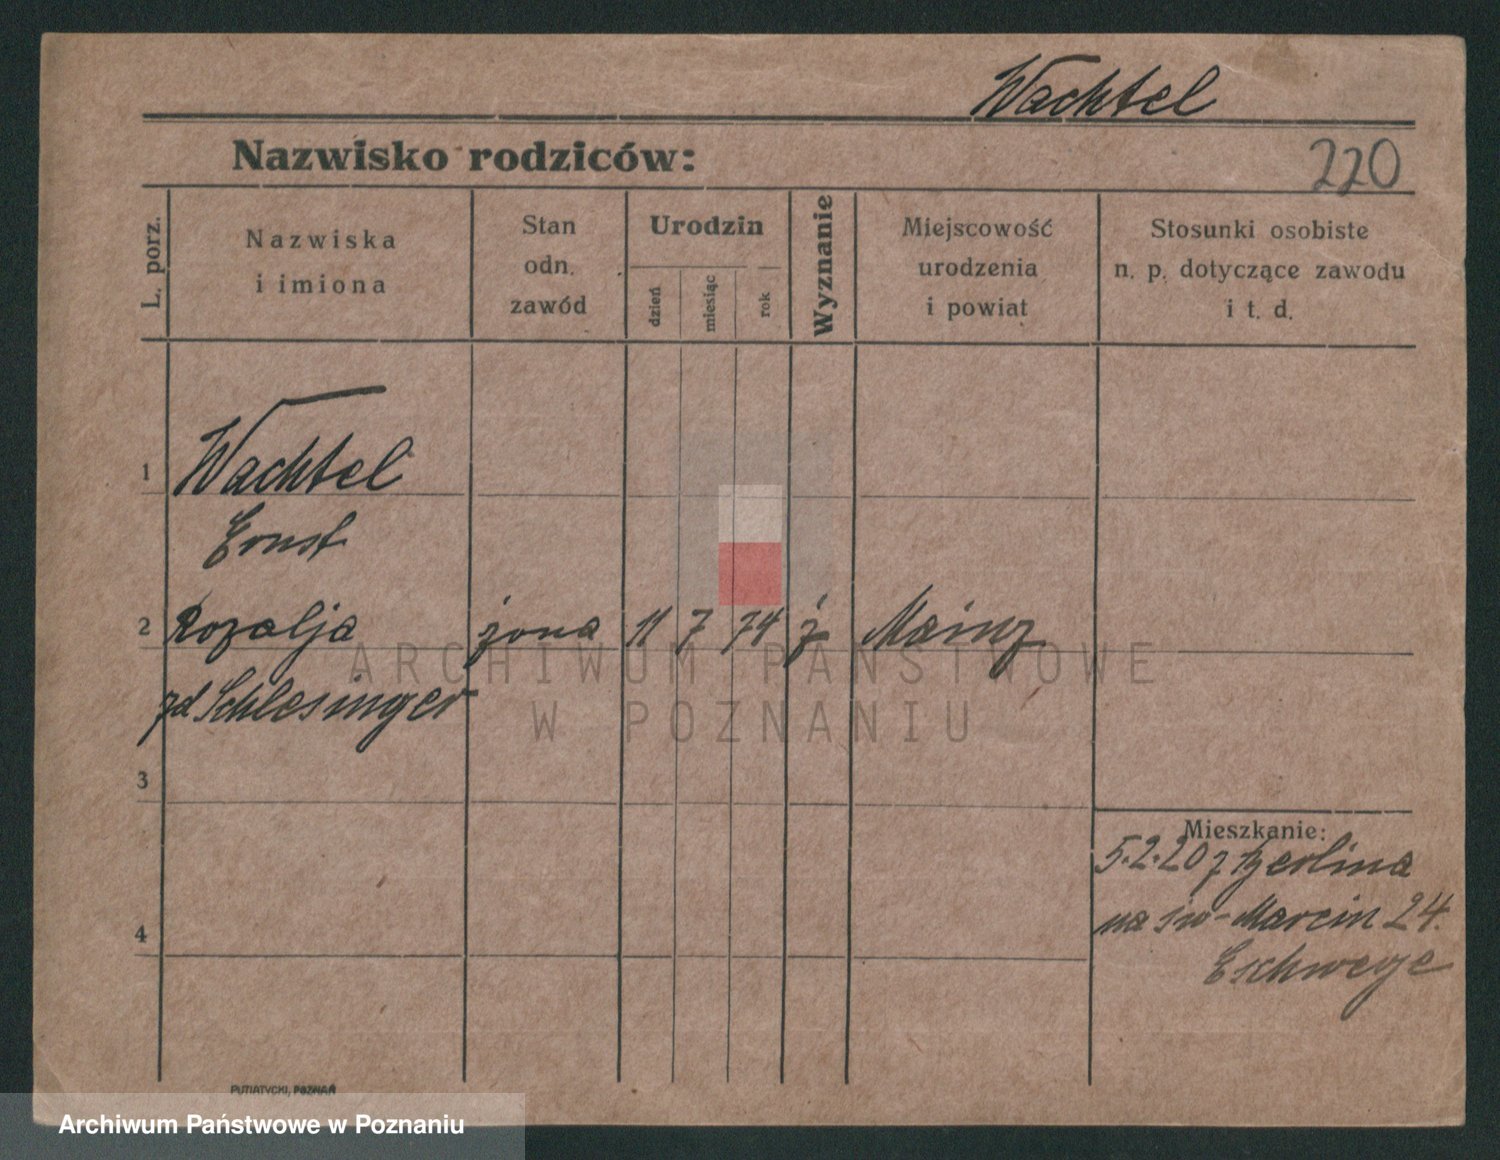 Wachtel
Nazwisko rodziców:
220
L. porz.
Nazwiska
i imiona
Stan
odn.
zawód
Urodzin
dzień
miesiąc
rok
Wyznanie
Miejscowość
urodzenia
i powiat
Stosunki osobiste
n. p. dotyczące zawodu
i t. d.
1 Wachtel
Ernst
2 Rozalja żona 11 7 74 ż Mainz
zd Schlesinger
3
4
Mieszkanie:
5.2.20 z Berlina
na św-Marcin 24.
Eschwege
PUTIATYCKI, POZNAŃ
ARCHIWUM PAŃSTWOWE
W POZNANIU
Archiwum Państwowe w Poznaniu